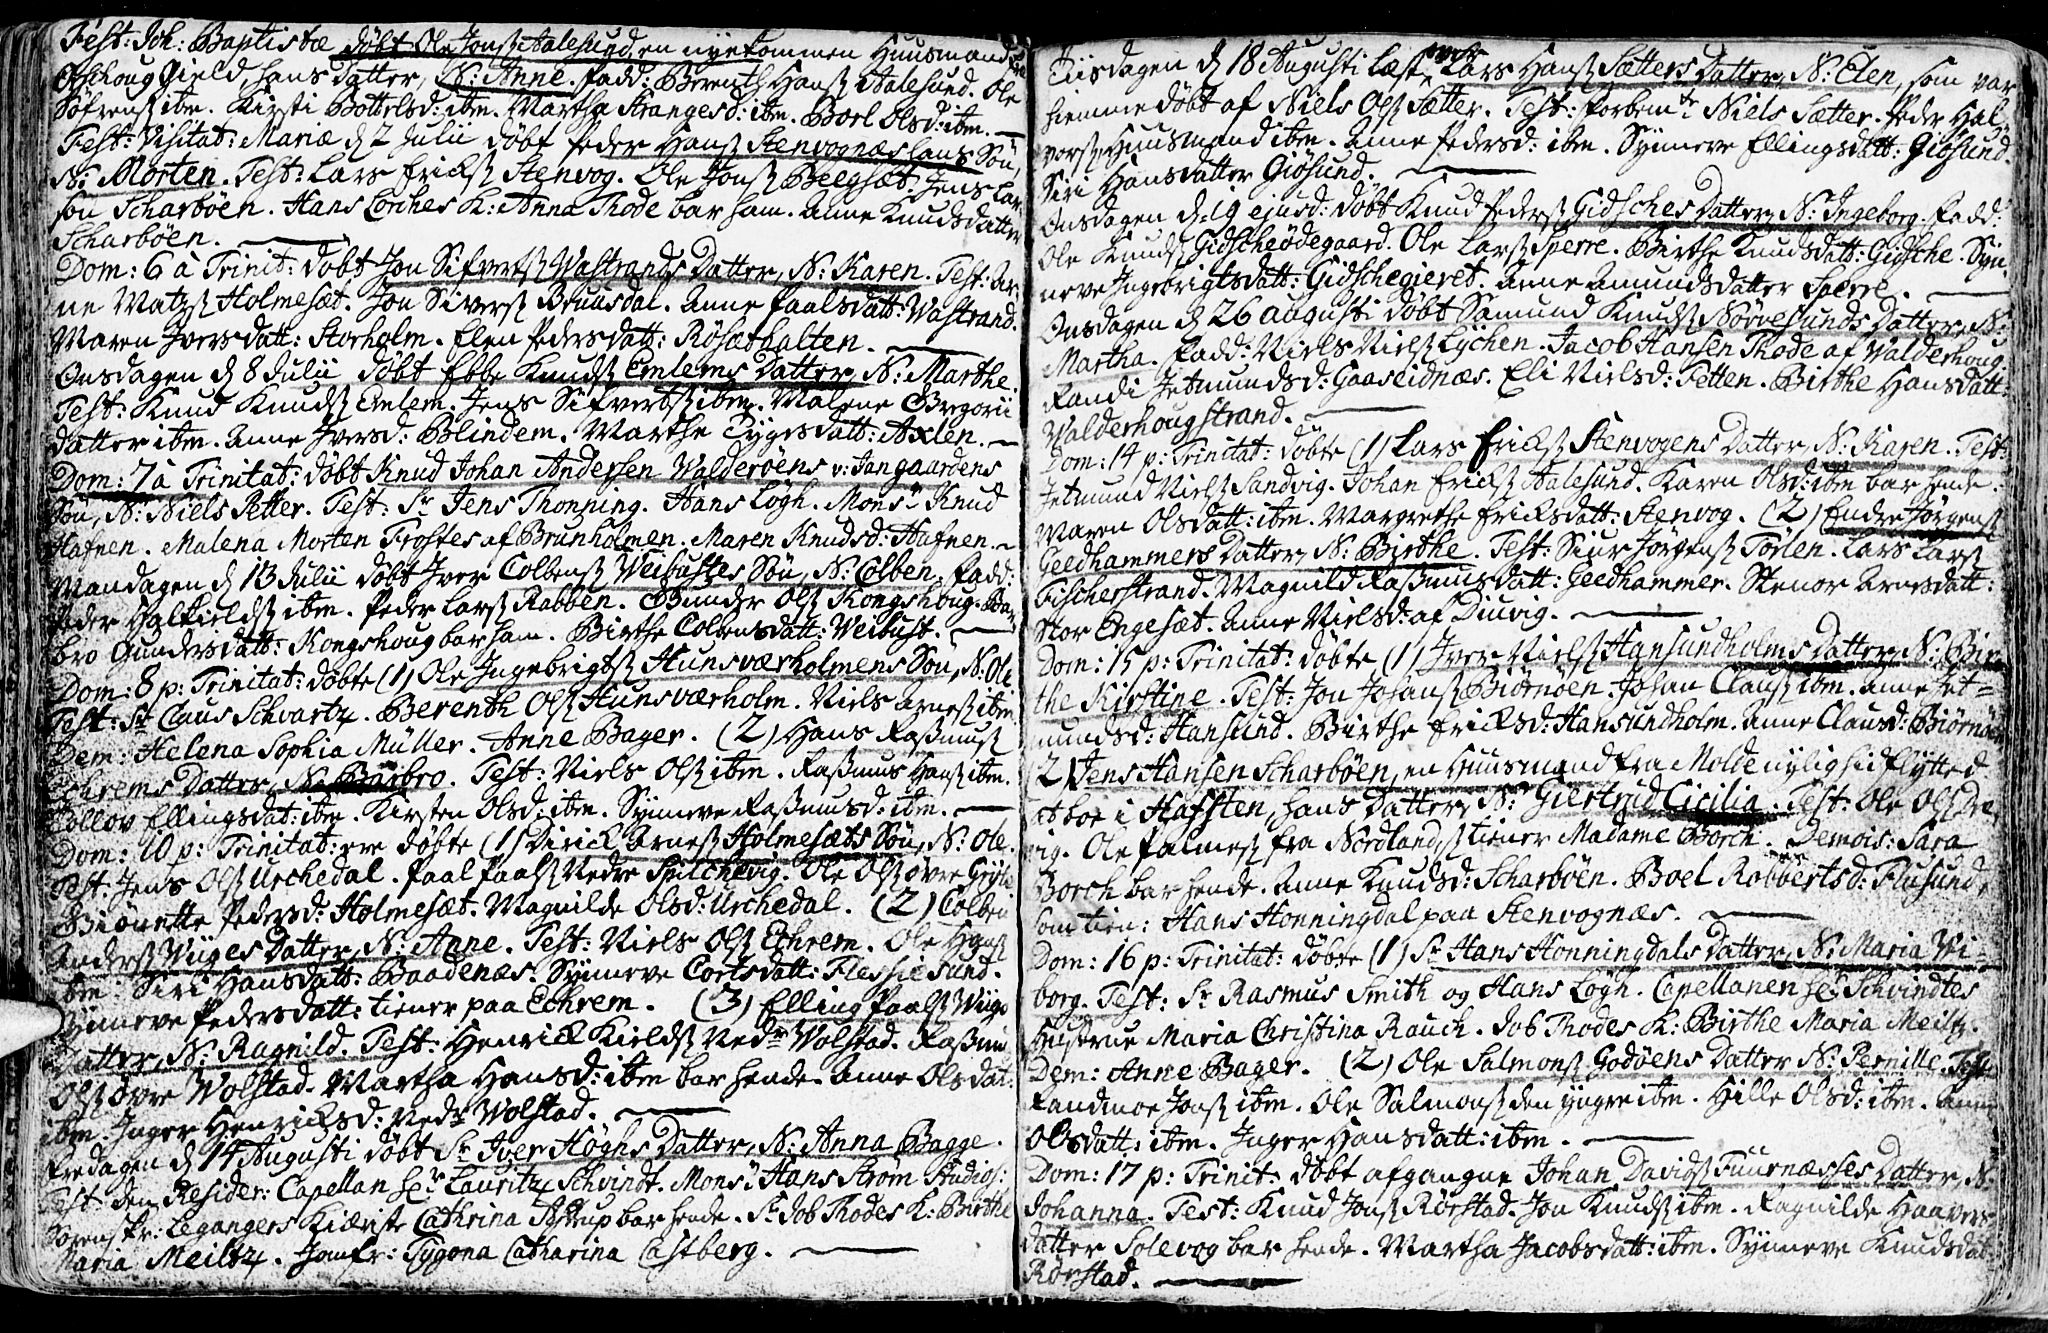 Fest: Joh: Baptistæ döbt Ole Jonsz Aalesund, en nyekommen Huusmand
Gield, hans Datter, N: Anne. Fadd: Berenth Hansz Aalesund. Ole
Söfrensz ibm. Kirsti Bottelsd: ibm. Martha Strangesd: ibm. Borl Olsd: ibm. —
Fest: Visitat: Mariæ d 2 Julii döbt Peder Hansz Stenvognæs hans Sön,
N: Morten. Test: Lars Ericksz Stenvog. Ole Jonsz Beegsæt. Jens Lar
sön Scharböen. Hans Lorches K: Anna Thode bar ham. Anne Knudsdatter
Scharböen. —
Dom: 6 à Trinit: döbt Jon Sifvertsz Vastrands Datter, N: Karen. Test: Ar,
ne Matzsz Holmesæt. Jon Siversz Bruusdal. Anne Paalsdatt: Vastrand.
Maren Iversdatt: Storholm. Elen Pedersdatt: Rösæthalten. —
Onsdagen d 8 Julii döbt Ebbe Knudsz Emlems Datter, N: Marthe.
Test: Knud Knudsz Emlem. Jens Sifvertsz ibm. Malene Gregorii
datter ibm. Anne Iversd: Blindem. Marthe Tygesdatt: Axlen. —
Dom: 7 à Trinitat: döbt Knud Johan Andersen Walderöens v: Jangaardens
Sön, N: Niels Petter. Test: Sr Jens Thonning. Hans Lögh. Monsr Knud
Hafnen. Malena Morten Frostes af Brunholmen. Maren Knudsd: Hafnen. —
Mandagen d 13 Julii döbt Iver Colbensz Veibustes Sön, N: Colben, Fadd:
Peder Halkieldsz ibm. Peder Larsz Rabben. Gunder Olsz Kongshoug. Bar,
bro Gundersdatt: Kongshoug bar ham. Birthe Colbensdatt: Veibust. —
Dom: 8 p: Trinitat: döbte (1) Ole Ingebrigtsz Hunsværholmens Sön, N: Ole
Test: Sr Claus Schvartz. Berenth Olsz Hunsværholm. Niels Arnesz ibm
Dem: Helena Sophia Müller. Anne Bager. (2) Hans Rasmusz
Echrems Datter, N: Barbro. Test: Niels Olsz ibm. Rasmus Hansz ibm.
Collov Ellingsdat: ibm. Kirsten Olsd: ibm. Synneve Rasmusd: ibm. —
Dom: 10 p: Trinitat: ere döbte (1) Dirick Arnesz Holmesæts Sön, N: Ole.
Test: Jens Olsz Urchedal. Paal Paalsz Nedre Spilchevig. Ole Olsz övre
Giönette Pedersd: Holmesæt. Magnilde Olsd: Urchedal. (2) Colben
Andersz Wiiges Datter, N: Anne. Test: Niels Olsz Echrem. Ole Hansz
ibm: Siri Hansdatt: Baadenæs. Synneve Cortsdatt: Flessiesund.
Synneve Pedersdatt: tiener paa Echrem. (3) Elling Paalsz Wiige
Datter, N: Ragnild. Test: Henrick Kieldsz Nedr Wolstad. Rasmus
Olsz övre Wolstad. Martha Hansd: ibm bar hende. Anne Olsdat:
ibm. Inger Henricksd: Nedr Wolstad. —
Fredagen d 14 Augusti döbt Sr Iver Höghs Datter, N: Anna Bagge.
Test: den Resider: Capellan Hr Lauritz Schvindt. Monsr Hans Ström Studios:
Sorenskr: Legangers Kiæriste Cathrina bar hende. Sr Job Thodes K: Birthe
Maria Meiltz. Jomfr: Tygona Catharina Castberg. —
Tiisdagen d 18 Augusti læst over Lars Hansz Sætters Datter, N: Elen, som var
hiemme döbt af Niels Olsz Sætter. Test: Niels Sætter. Peder Hal,
vorsz Huusmand ibm. Anne Pedersd: ibm. Synneve Ellingsdatt: Giösund.
Siri Hansdatter Giösund. —
Onsdagen d 19 ejusd: döbt Knud Pedersz Gidsches Datter, N: Ingeborg. Fadd:
Ole Knudsz Gidscheödegaard. Ole Larsz Sperre. Birthe Knudsdatt: Gidsche. Syn,
neve Ingebrigtsdatt: Gidschegieret. Anne Amundsdatter Sperre. —
Onsdagen d 26 augusti döbt Samund Knudsz Nörvesunds Datter, N:
Martha. Fadd: Niels Nielsz Lychen. Jacob Hansen Thode af Walderhoug.
Randi Jetmundsd: Gaaseidnæs. Eli Nielsd: Fetten. Birthe Hansdatt:
Walderhougstrand. —
Dom: 14 p: Trinitat: döbte (1) Lars Ericksz Stenvogens Datter, N: Karen. Test:
Jetmund Nielsz Sandvig. Johan Ericksz Aalesund. Karen Olsd: ibm bar hende.
Maren Olsdatt: ibm. Margrethe Ericksdatt: Stenvog. (2) Endre Jörgensz
Geedhammers Datter, N: Birthe. Test: Siur Jörgensz Törlen. Lars Larsz
Fischerstrand. Magnild Rasmusdatt: Geedhammer. Stenor Arnesdatt:
Stor Engesæt. Anne Nielsd: af Diuvig. —
Dom: 15 p: Trinitat: döbte (1) Iver Nielsz Hansundholms Datter, N: Bir,
the Kirstine. Test: Jon Johansz Biörnöen. Johan Clausz ibm. Anne Jet=
mundsd: Hansund. Birthe Ericksd: Hansundholm. Anne Clausd: Biörnöen
2) Jens Hansen Scharböen, en Huusmand fra Molde nylig hidflytted
at boe i Hafsten, hans Datter, N: Giertrud Cicilia. Test: Ole Olsz De,
vig. Ole Palmesz fra Nordland, tiener Madame Borch. Demois: Sara
Borch bar hende. Anne Knudsd: Scharböen. Boel Robbertsd: Flusund,
som tien: Hans Honningdal paa Stenvognæs. —
Dom: 16 p: Trinitat: döbte (1) Sr Hans Honningdals Datter, N: Maria Wi=
borg. Test: Sr Rasmus Smith og Hans Lögh. Capellanen Hr Schvindtes
Hustrue Maria Christina Rauch. Job Thodes K: Birthe Maria Meiltz.
Dem: Anne Bager. (2) Ole Salmonsz Godöens Datter N: Pernille. Test:
Randmoe Jonsz ibm. Ole Salmonsz den yngre ibm. Hille Olsd: ibm. Anne
Olsdatt: ibm. Inger Hansdatt: ibm. —
Dom: 17 p: Trinit: döbt afgangne Johan Davidsz Tuurnæsses Datter, N:
Johanna. Test: Knud Jonsz Rörstad. Jon Knudsz ibm. Ragnilde Haavers
datter Solevog bar hende. Martha Jacobsdatt: ibm. Synneve Knudsdat:
Rörstad. —